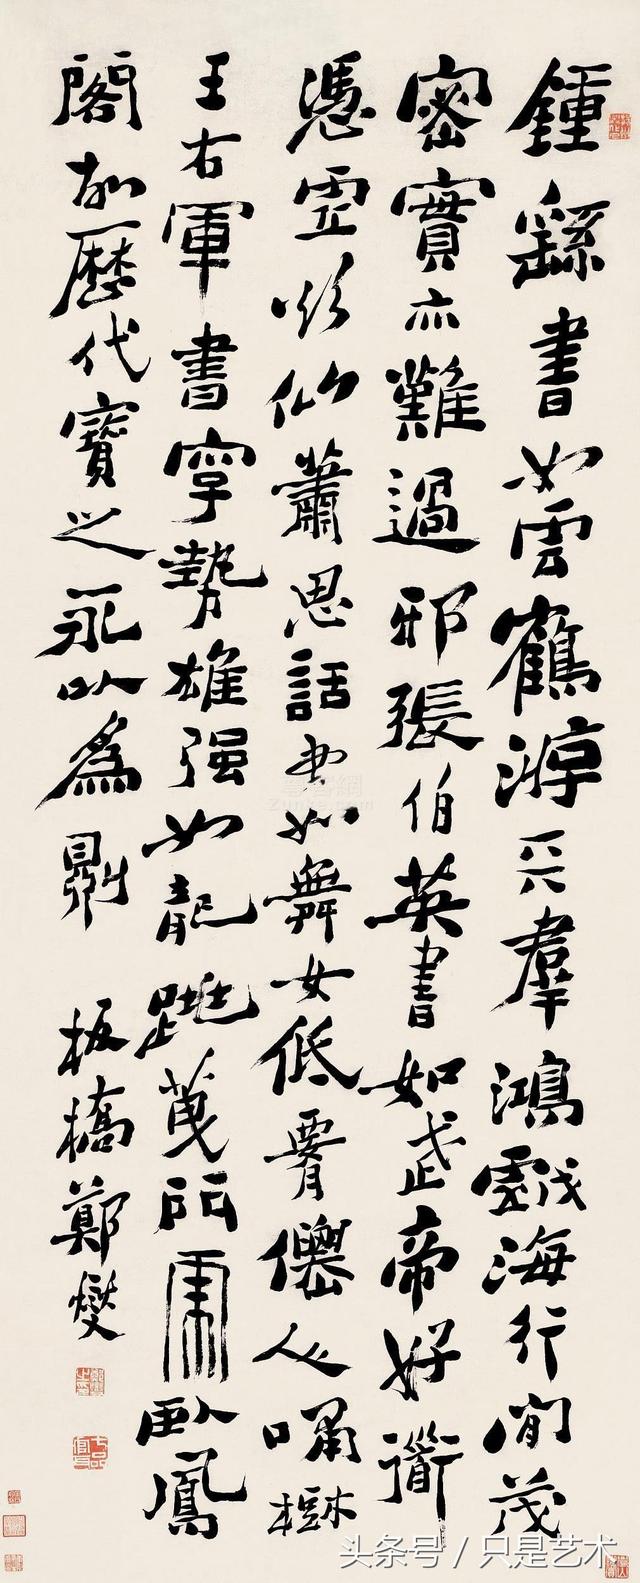 鍾繇書如雲鶴游天羣鴻戲海行間茂
密實亦難過邪張伯英書如武帝好道
憑虛欲仙蕭思話書如舞女低腰僊人嘯樹
王右軍書字勢雄強如龍跳天門虎臥鳳
閣故歷代寶之永以為訓
板橋鄭燮
Zunke.com
头条号 / 只是艺术